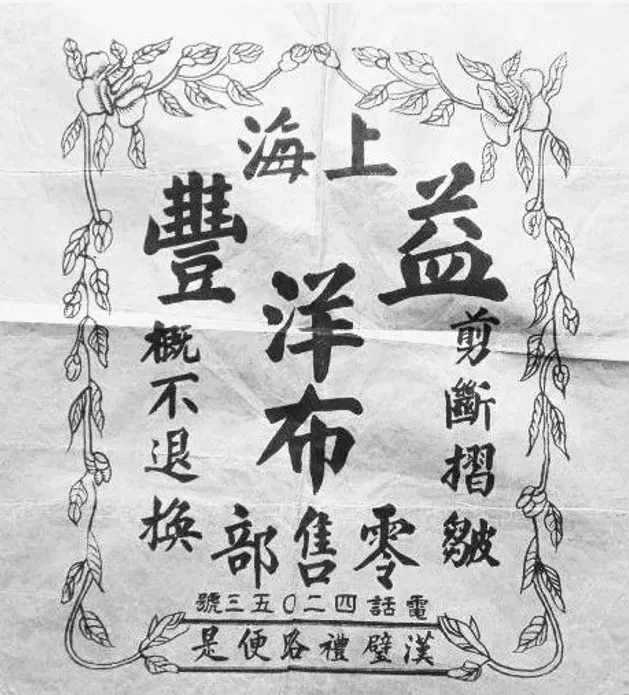 上海
益豐
洋布
零售部
剪斷摺皺
概不退換
電話四二〇五三號
漢璧禮路便是